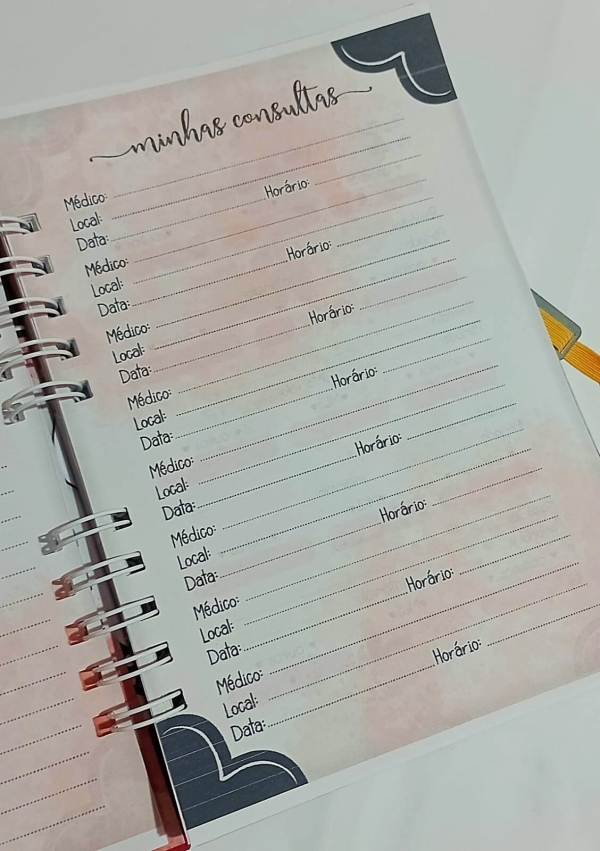 minhas consultas
Médico:
Local:
Data: Horário:
Médico:
Local:
Data: Horário:
Médico:
Local:
Data: Horário:
Médico:
Local:
Data: Horário:
Médico:
Local:
Data: Horário:
Médico:
Local:
Data: Horário:
Médico:
Local:
Data: Horário:
Médico:
Local:
Data: Horário: